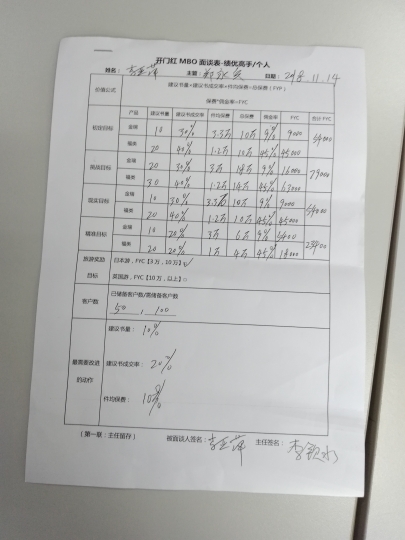 开门红 MBO 面谈表-绩优高手/个人
姓名： 主管： 日期： 2018.11.14
价值公式 建议书量*建议书成交率*件均保费=总保费（FYP）
保费*佣金率=FYC
产品 建议书量 建议书成交率 件均保费 总保费 佣金率 FYC 合计 FYC
金瑞 10 30% 3.3万 10万 9% 9000 54000
福类 20 40% 1.2万 10万 45% 45000
挑战目标 金瑞 20 30% 3万 18万 9% 16000 79000
福类 30 40% 1.2万 14万 45% 63000
金瑞 10 30% 3.3万 10万 9% 9000 54000
福类 20 40% 1.2万 10万 45% 45000
金瑞 10 20% 3万 6万 9% 5400 23400
福类 20 20% 1万 4万 45% 18000
旅游奖励目标 日本游，FYC【3万，10万】☑
英国游，FYC【10万，以上】□
客户数 已储备客户数/需储备客户数
50 100
最需要改进的动作
建议书量： 10%
建议书成交率： 20%
件均保费： 10%
（第一联：主任留存） 被面谈人签名： 主任签名：